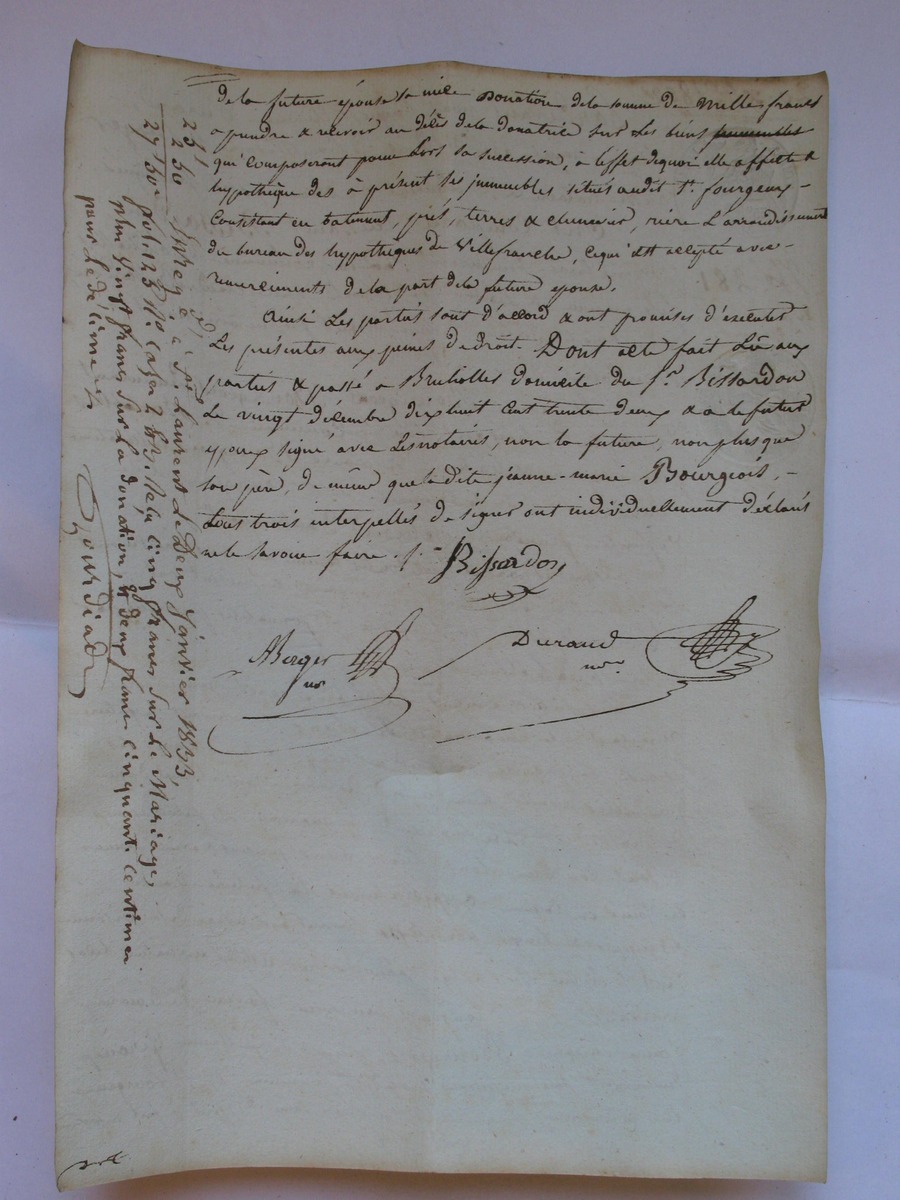 de la future épouse sa niéce donation de la somme de Mille francs
a prendre & recevoir au décès de la donatrice sur Les biens immeubles
qui composeront pour Lors sa succession, à l'effet de quoi elle affecte &
hypothèque des à présent ses immeubles situés audit St. forgeux
Consistant en batiment, prés, terres & chenevier, rière L'arrondissement
du bureau des hypothèques de Villefranche, Cequi est accepté avec
remerciments de la part de la future epouse.
Ainsi Les parties sont d'accord & ont promises d'executer
Les présentes aux peines de droit. Dont acte fait Lû aux
parties & passé a Brullolles domicile du Sr. Bissardon
Le vingt décembre dix huit Cent trente deux & a le futur
epoux signé avec Les notaires, non la future, non plus que
son père, de même que la dite jeanne-marie Bourgeois,
tous trois interpellés de signer ont individuellement déclaré
ne le savoir faire ./.
Bissardon
ABerger
nre
Durand
nre
25f
2 50
27f 50c
Enreg. é à St. Laurent Le Deux Janvier 1833,
fol. 125 Ro. cases 2 &3. Reçu cinq francs sur Le Mariage,
plus vingt francs sur La donation, & deux francs cinquante centimes
pour Le décime